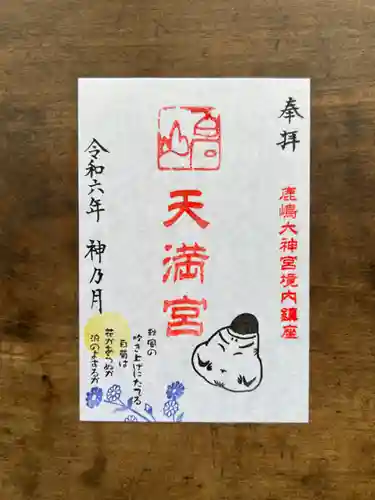 奉拝
鹿嶋大神宮境内鎮座
天満宮
秋風の
吹き上げにたてる
白菊は
花かあらぬか
浪のよするか
令和六年 神乃月